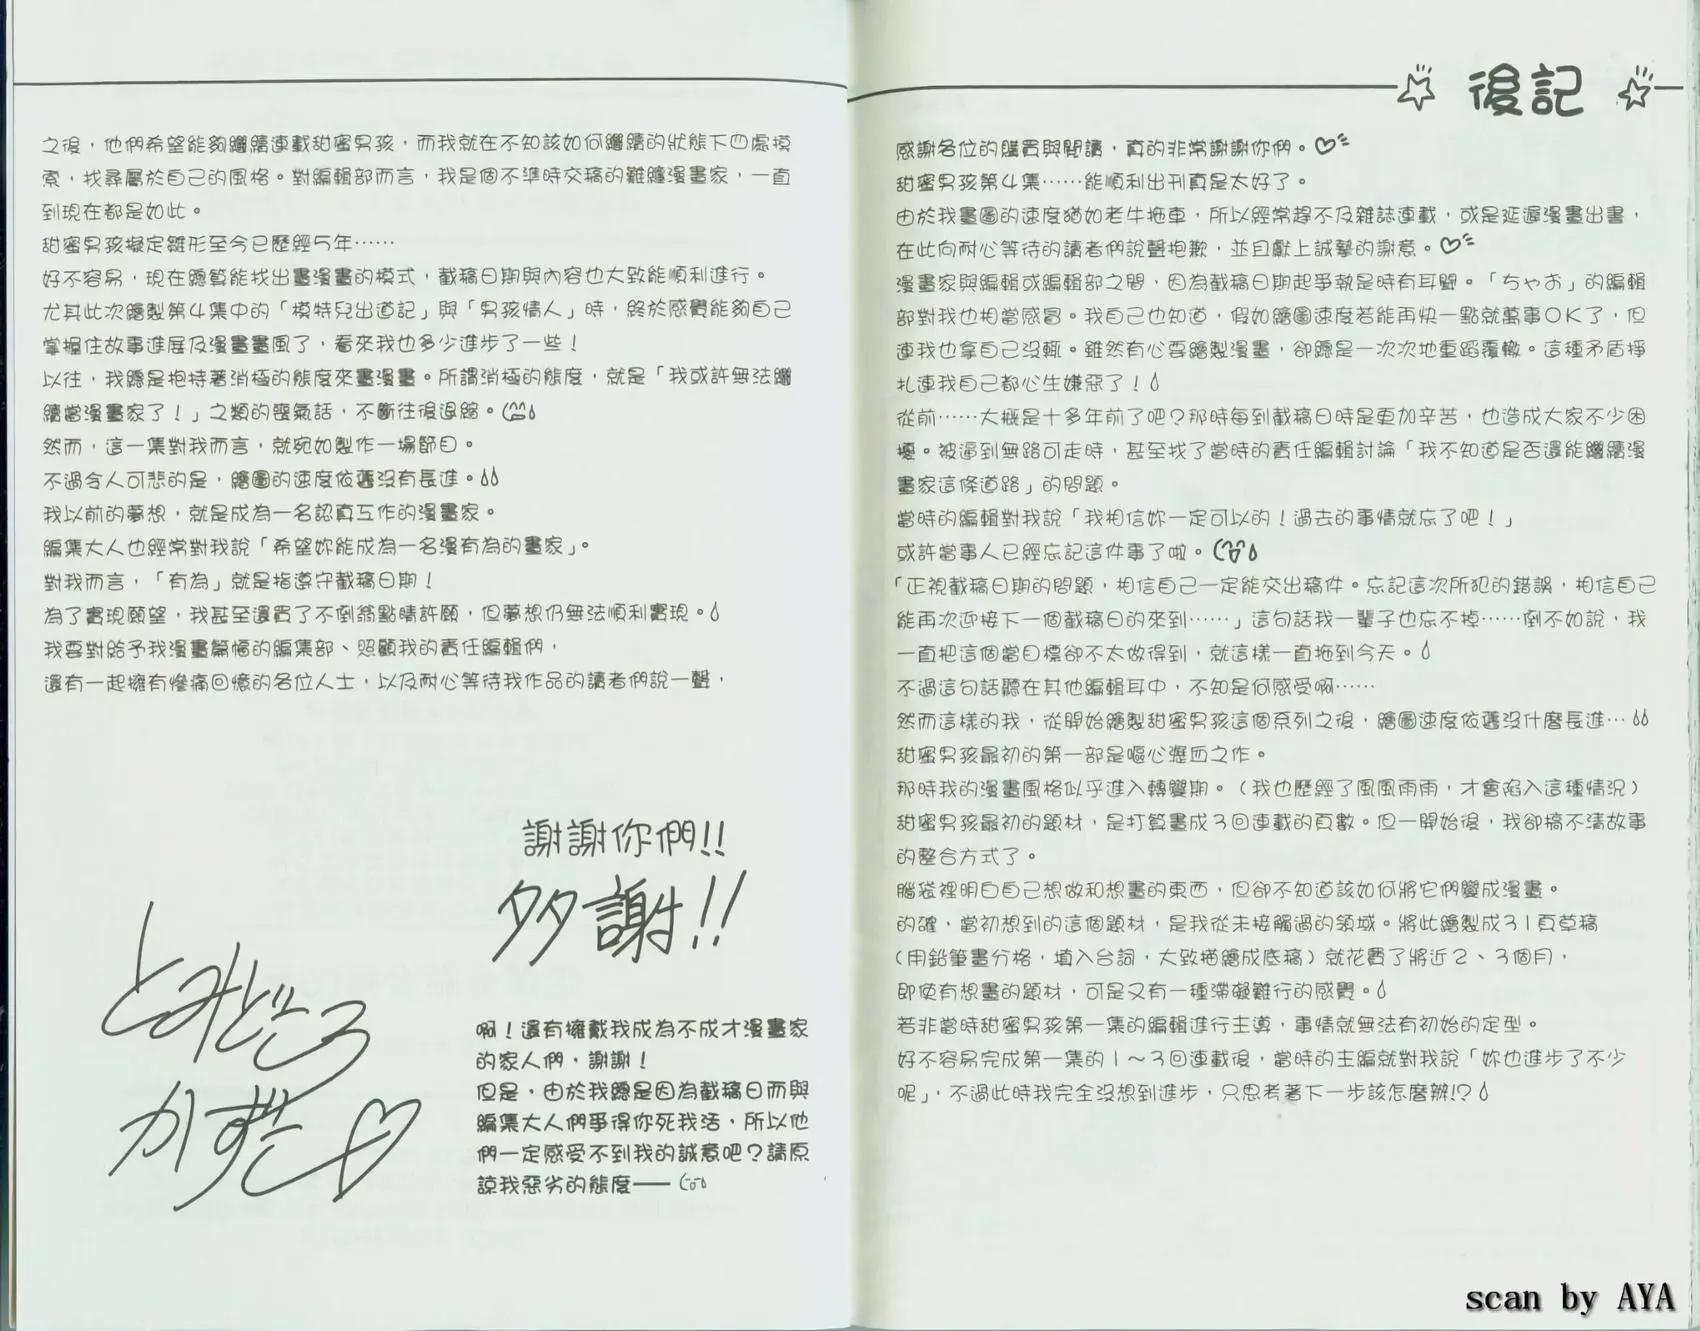 後記
感謝各位的購買與閱讀，真的非常謝謝你們。
甜蜜男孩第4集……能順利出刊真是太好了。
由於我畫圖的速度猶如老牛拖車，所以經常趕不及雜誌連載，或是延遲漫畫出書，
在此向耐心等待的讀者們說聲抱歉，並且獻上誠摯的謝意。
漫畫家與編輯或編輯部之間，因為截稿日期起爭執是時有耳聞。「ちゃお」的編輯
部對我也相當感冒。我自己也知道，假如繪圖速度若能再快一點就萬事OK了，但
連我也拿自己沒輒。雖然有心要繪製漫畫，卻總是一次次地重蹈覆轍。這種矛盾掙
扎連我自己都心生嫌惡了！
從前……大概是十多年前了吧？那時每到截稿日時是更加辛苦，也造成大家不少困
擾。被逼到無路可走時，甚至找了當時的責任編輯討論「我不知道是否還能繼續漫
畫家這條道路」的問題。
當時的編輯對我說「我相信妳一定可以的！過去的事情就忘了吧！」
或許當事人已經忘記這件事了啦。
「正視截稿日期的問題，相信自己一定能交出稿件。忘記這次所犯的錯誤，相信自己
能再次迎接下一個截稿日的來到……」這句話我一輩子也忘不掉……倒不如說，我
一直把這個當目標卻不太做得到，就這樣一直拖到今天。
不過這句話聽在其他編輯耳中，不知是何感受啊……
然而這樣的我，從開始繪製甜蜜男孩這個系列之後，繪圖速度依舊沒什麼長進…
甜蜜男孩最初的第一部是嘔心瀝血之作。
那時我的漫畫風格似乎進入轉變期。（我也歷經了風風雨雨，才會陷入這種情況）
甜蜜男孩最初的題材，是打算畫成3回連載的頁數。但一開始後，我卻搞不清故事
的整合方式了。
腦袋裡明白自己想做和想畫的東西，但卻不知道該如何將它們變成漫畫。
的確，當初想到的這個題材，是我從未接觸過的領域。將此繪製成31頁草稿
（用鉛筆畫分格，填入台詞，大致描繪成底稿）就花費了將近2、3個月，
即使有想畫的題材，可是又有一種滯礙難行的感覺。
若非當時甜蜜男孩第一集的編輯進行主導，事情就無法有初始的定型。
好不容易完成第一集的1～3回連載後，當時的主編就對我說「妳也進步了不少
呢」，不過此時我完全沒想到進步，只思考著下一步該怎麼辦!?
之後，他們希望能夠繼續連載甜蜜男孩，而我就在不知該如何繼續的狀態下四處摸
索，找尋屬於自己的風格。對編輯部而言，我是個不準時交稿的難纏漫畫家，一直
到現在都是如此。
甜蜜男孩擬定雛形至今已歷經5年……
好不容易，現在總算能找出畫漫畫的模式，截稿日期與內容也大致能順利進行。
尤其此次繪製第4集中的「模特兒出道記」與「男孩情人」時，終於感覺能夠自己
掌握住故事進展及漫畫畫風了，看來我也多少進步了一些！
以往，我總是抱持著消極的態度來畫漫畫。所謂消極的態度，就是「我或許無法繼
續當漫畫家了！」之類的喪氣話，不斷往後退縮。
然而，這一集對我而言，就宛如製作一場節目。
不過令人可悲的是，繪圖的速度依舊沒有長進。
我以前的夢想，就是成為一名認真工作的漫畫家。
編集大人也經常對我說「希望妳能成為一名漫有為的畫家」。
對我而言，「有為」就是指遵守截稿日期！
為了實現願望，我甚至還買了不倒翁點睛許願，但夢想仍無法順利實現。
我要對給予我漫畫篇幅的編集部、照顧我的責任編輯們，
還有一起擁有慘痛回憶的各位人士，以及耐心等待我作品的讀者們說一聲，
謝謝你們!!
多謝!!
とみどころ
かずこ
啊！還有擁戴我成為不成才漫畫家
的家人們，謝謝！
但是，由於我總是因為截稿日而與
編集大人們爭得你死我活，所以他
們一定感受不到我的誠意吧？請原
諒我惡劣的態度——
scan by AYA